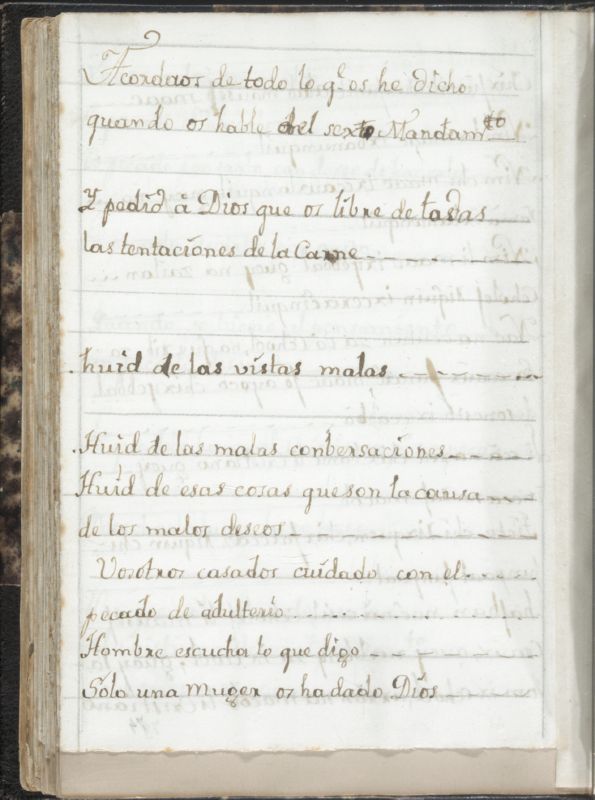 Acordaos de todo lo q.e os he dicho
quando os hable del sexto Mandam.to
Y pedid á Dios que os libre de todas
las tentaciones de la Carne
huid de las vistas malas
Huid de las malas conbersaciones
Huid de esas cosas que son la causa
de los malos deseos
Vosotros casados cuidado con el
pecado de adulterio
Hombre escucha lo que digo
Solo una Muger os ha dado Dios